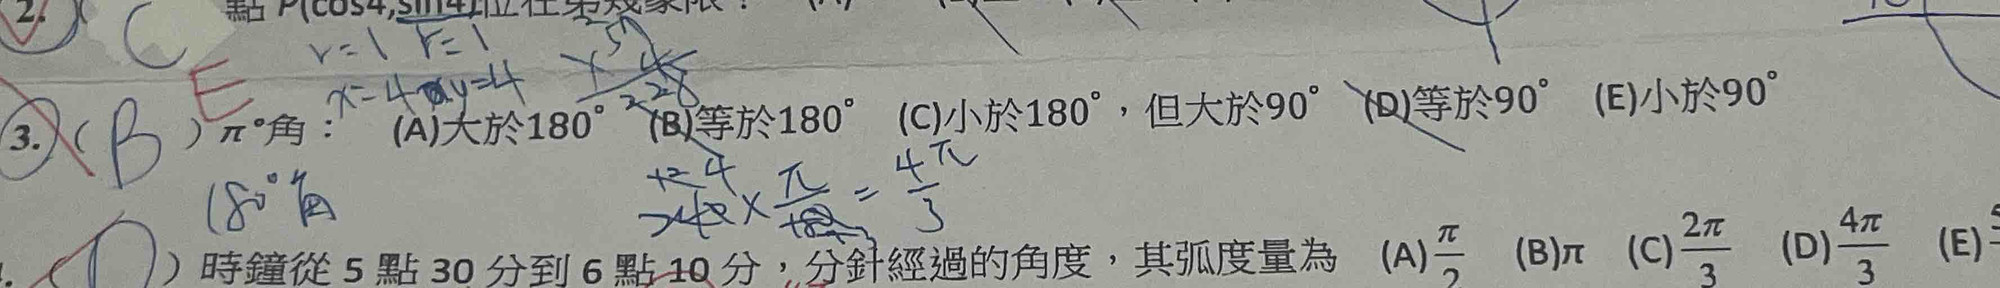 2. C 點 P(cos4,sin4)位在第幾象限？ (A)
r=1 r=1
x=4 y=4
228
E
3. (B) π°角： (A)大於180° (B)等於180° (C)小於180°，但大於90° (D)等於90° (E)小於90°
180°角 × π = 4π/3
(D) 時鐘從 5 點 30 分到 6 點 10 分，分針經過的角度，其弧度量為 (A)π/2 (B)π (C)2π/3 (D)4π/3 (E)